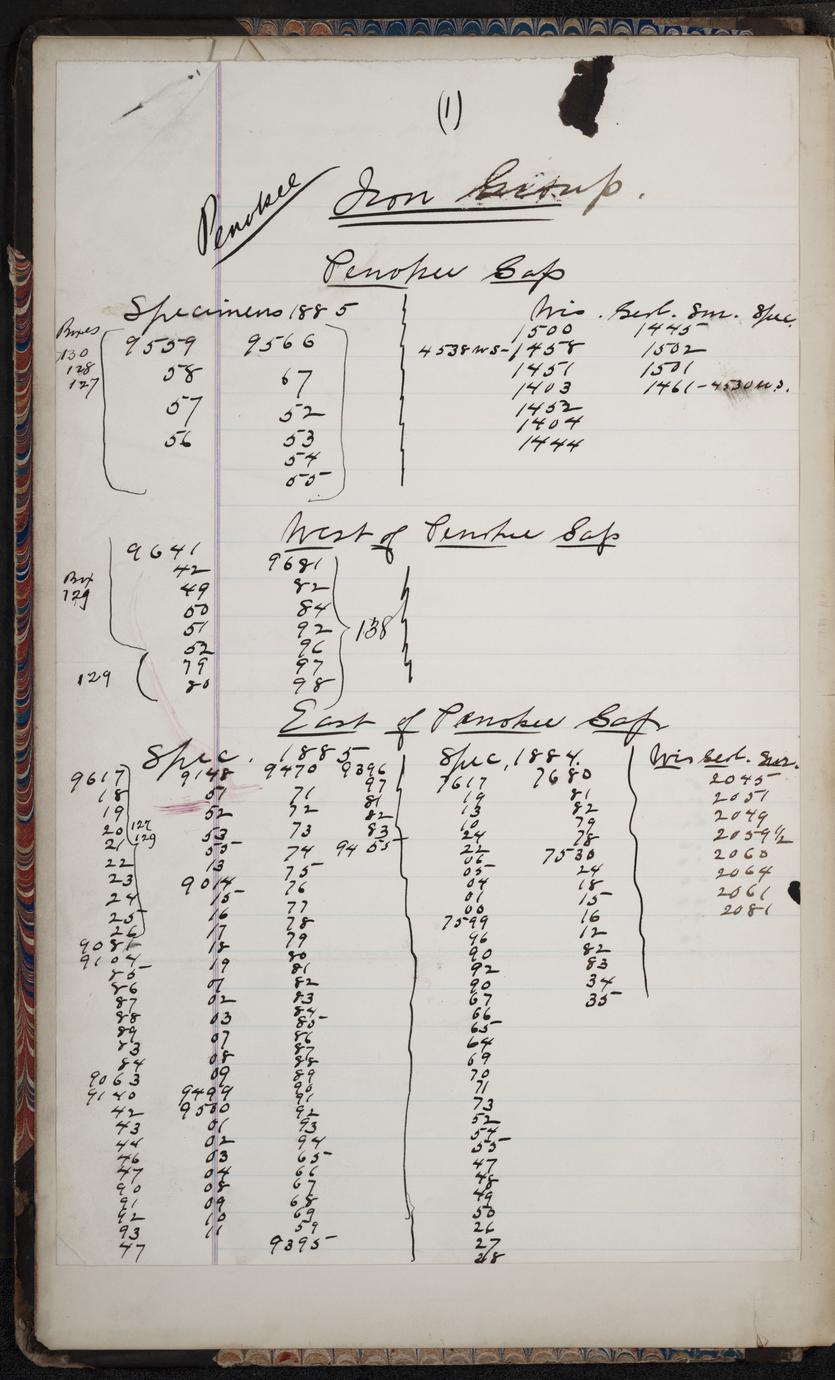 (1)
Penokee Iron Group.
Penokee Gap
Specimens 1885 Wis. Geol. Sur. Spec.
Boxes 130 128 127
9559 9566
58 67
57 52
56 53
54
55
1500 1445
4538 W.S.-1458 1502
1451 1501
1403 1461-4530 W.S.
1452
1404
1444
West of Penokee Gap
Box 129
9641 9681
42 82
49 84
50 92
51 96
52 97
129 79 98
80
138
East of Penokee Gap
Spec. 1885 Spec, 1884. Wis Geol. Sur.
9617
18
19
20 127
21 129
22
23
24
25
26
9081
9104
85
86
87
88
89
83
84
9063
9140
42
43
44
46
47
90
91
92
93
47
9148
51
52
53
55
13
9014
15
16
17
18
19
01
02
03
07
08
09
9499
9500
01
02
03
04
08
09
10
11
9470
71
72
73
74
75
76
77
78
79
80
81
82
83
84
85
86
87
88
89
90
91
92
93
94
65
66
67
68
69
59
9395
9396
97
81
82
83
9455
7617
13
10
24
22
06
05
04
01
00
7599
96
90
92
90
67
66
65
64
69
70
71
73
52
54
55
47
48
49
50
26
27
28
7680
81
82
79
78
7530
24
18
15
16
12
82
83
34
35
2045
2051
2049
2059½
2060
2064
2061
2081